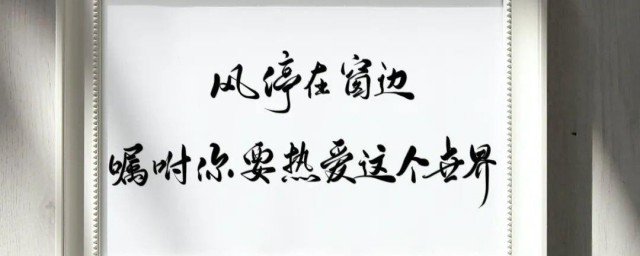 风停在窗边
嘱咐你要热爱这个世界